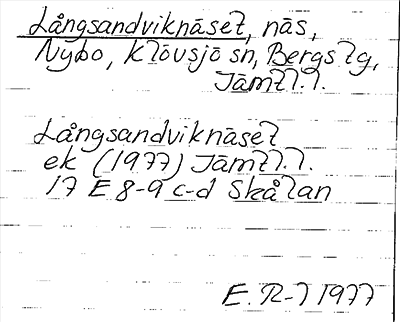 Långsandviknäset, näs,
Nybo, Klövsjö sn, Bergs tg,
Jämtl.l.
Långsandviknäset
ek (1977) Jämtl.l.
17 E 8-9 c-d Skålan
E. R-l 1977